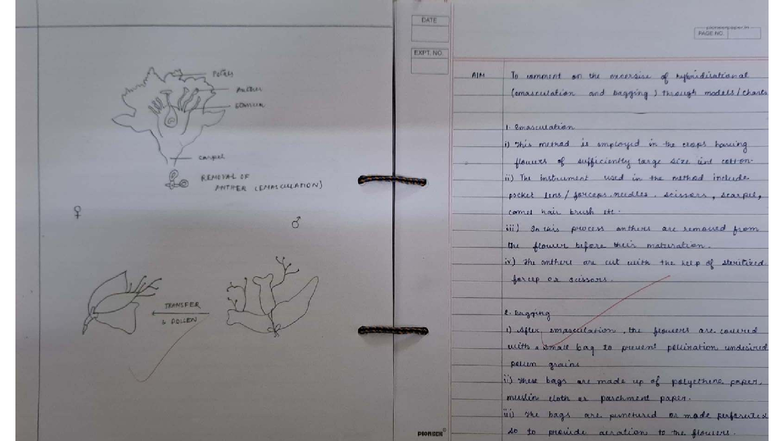 Petals
Anther
Stamen
Carpel
REMOVAL OF
ANTHER (EMASCULATION)
♀
♂
TRANSFER
POLLEN
DATE
EXPT. NO.
PAGE NO.
AIM To comment on the excersise of hybridisational
(emasculation and Bagging) through models/charts
1. Emasculation
i) This method is employed in the crops having
flowers of sufficiently large size cotton.
ii) The Instrument used in the method include
pocket lens / forceps needles, scissors, scarpel,
camel hair brush etc.
iii) In this process anthers are removed from
the flower before their maturation.
iv) The anthers are cut with the help of sterilized
forcep or scissors.
2. Bagging
i) After emasculation, the flowers are covered
with a small bag to prevent pollination undesired
pollen grains
ii) These bags are made up of polyethene paper,
muslin cloth or parchment paper.
iii) The bags are punctured or made perforated
so to provide aeration to the flowers.
PIONEER